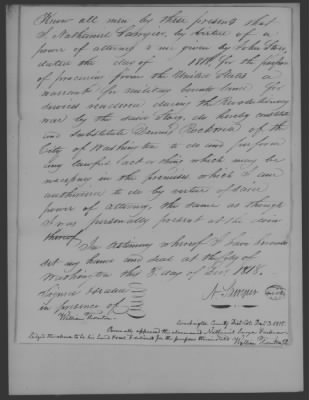 Know all men by these presents that
I Nathaniel Sawyer, by virtue of a
power of attorney to me given by John Stary
dated the day of 1818, for the purpose
of procuring from the United States a
warrant for military bounty land for
services rendered during the Revolutionary
war by the said Stary, do hereby
and substitute Samuel of the
City of Washington to do and perform
any lawful act or thing which may be
necessary in the premises, which I am
authorised to do by virtue of said
power of attorney, the same as though
I was personally present at the doing
thereof
In testimony whereof I have hereunto
set my hand and seal at the City of
Washington this 3 day of Decr 1818.
Signed & sealed
in presence of
N. Sawyer
William Thornton
Washington County Dist. Col. Decr 3. 1818.
Personally appeared the abovenamed Nathaniel Sawyer &
the above to be his hand & seal & for the purposes therein
William Thornton